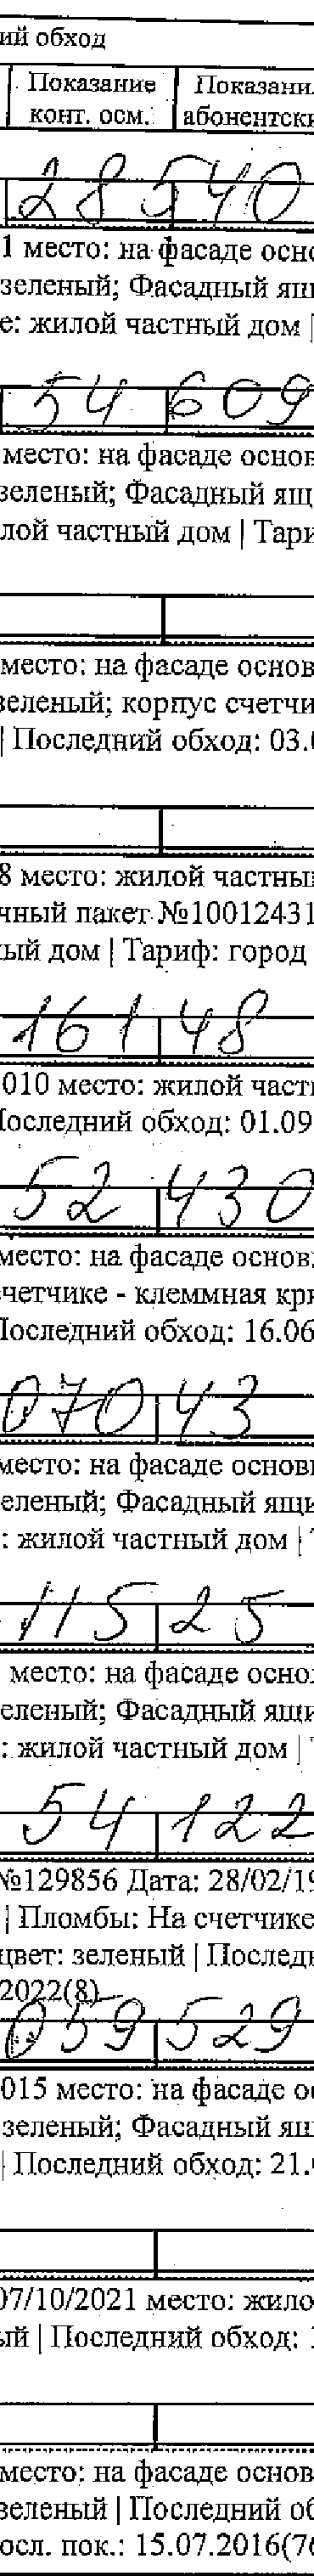 ий обход
Показание Показани
конт. осм. абонентск
28540
1 место: на фасаде осн
зеленый; Фасадный ящ
е: жилой частный дом |
54 609
место: на фасаде основ
зеленый; Фасадный ящ
лой частный дом | Тари
место: на фасаде основ
зеленый; корпус счетчи
| Последний обход: 03.
8 место: жилой частны
чный пакет №10012431
ый дом | Тариф: город
161 48
010 место: жилой част
Последний обход: 01.09
52 430
место: на фасаде основ
счетчике - клеммная кр
Последний обход: 16.06
070 43
место: на фасаде основ
еленый; Фасадный ящи
: жилой частный дом |
115 25
место: на фасаде осно
еленый; Фасадный ящи
: жилой частный дом |
54 122
№129856 Дата: 28/02/19
| Пломбы: На счетчике
цвет: зеленый | Последн
2022(8)
059 529
015 место: на фасаде о
зеленый; Фасадный ящ
| Последний обход: 21.
07/10/2021 место: жило
ый | Последний обход:
место: на фасаде основ
зеленый | Последний об
осл. пок.: 15.07.2016(76